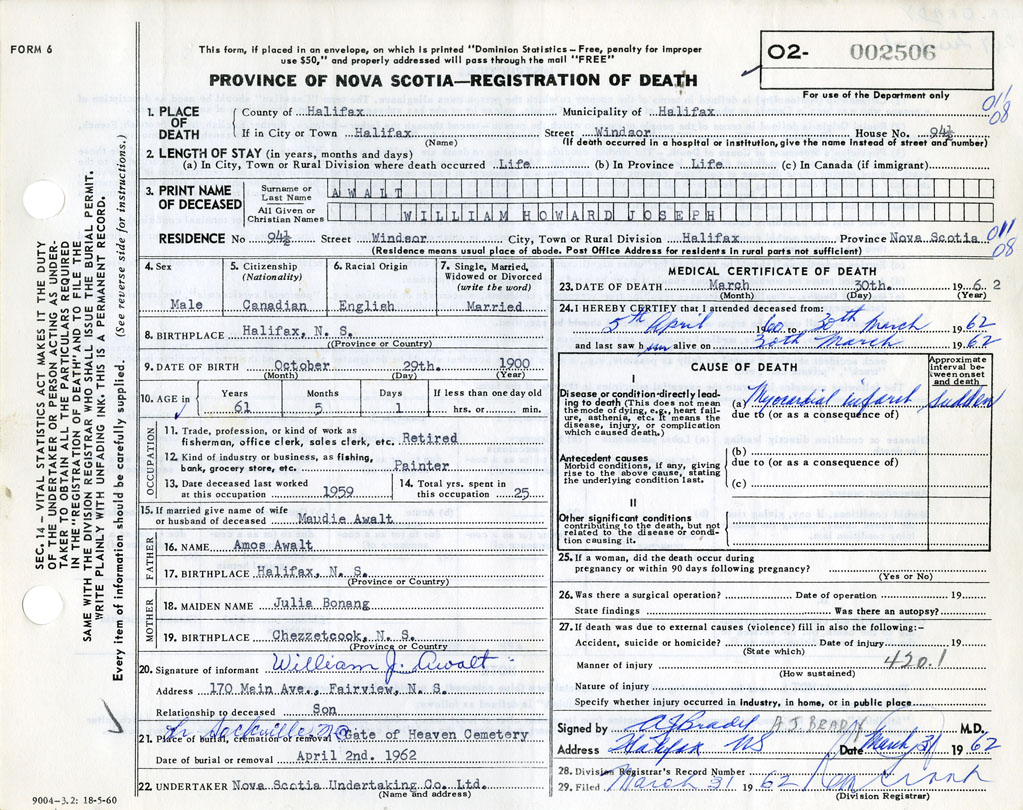 FORM 6
This form, if placed in an envelope, on which is printed "Dominion Statistics – Free, penalty for improper
use $50," and properly addressed will pass through the mail "FREE"
PROVINCE OF NOVA SCOTIA—REGISTRATION OF DEATH
O2- 002506
For use of the Department only
011
08
SEC. 14 – VITAL STATISTICS ACT MAKES IT THE DUTY
OF THE UNDERTAKER OR PERSON ACTING AS UNDER-
TAKER TO OBTAIN ALL THE PARTICULARS REQUIRED
IN THE "REGISTRATION OF DEATH" AND TO FILE THE
SAME WITH THE DIVISION REGISTRAR WHO SHALL ISSUE THE BURIAL PERMIT.
WRITE PLAINLY WITH UNFADING INK. THIS IS A PERMANENT RECORD.
Every item of information should be carefully supplied. (See reverse side for instructions.)
1. PLACE OF DEATH
County of Halifax Municipality of Halifax
If in City or Town Halifax Street Windsor House No. 94½
(Name) (If death occurred in a hospital or institution, give the name instead of street and number)
2. LENGTH OF STAY (in years, months and days)
(a) In City, Town or Rural Division where death occurred Life (b) In Province Life (c) In Canada (if immigrant)
3. PRINT NAME OF DECEASED
Surname or Last Name AWALT
All Given or Christian Names WILLIAM HOWARD JOSEPH
RESIDENCE No 94½ Street Windsor City, Town or Rural Division Halifax Province Nova Scotia
011
08
(Residence means usual place of abode. Post Office Address for residents in rural parts not sufficient)
4. Sex
Male
5. Citizenship (Nationality)
Canadian
6. Racial Origin
English
7. Single, Married, Widowed or Divorced (write the word)
Married
8. BIRTHPLACE Halifax, N. S.
(Province or Country)
9. DATE OF BIRTH October 29th. 1900
(Month) (Day) (Year)
10. AGE in Years Months Days If less than one day old
61 5 1 hrs. or min.
OCCUPATION
11. Trade, profession, or kind of work as
fisherman, office clerk, sales clerk, etc. Retired
12. Kind of industry or business, as fishing,
bank, grocery store, etc. Painter
13. Date deceased last worked
at this occupation 1959
14. Total yrs. spent in
this occupation 25
15. If married give name of wife
or husband of deceased Maudie Awalt
FATHER
16. NAME Amos Awalt
17. BIRTHPLACE Halifax, N. S.
(Province or Country)
MOTHER
18. MAIDEN NAME Julia Bonang
19. BIRTHPLACE Chezzetcook, N. S.
(Province or Country)
20. Signature of informant William J. Awalt
Address 170 Main Ave., Fairview, N. S.
Relationship to deceased Son
Sackville
21. Place of burial, cremation or removal Gate of Heaven Cemetery
Date of burial or removal April 2nd. 1962
22. UNDERTAKER Nova Scotia Undertaking Co. Ltd.
(Name and address)
9004–3.2: 18-5-60
MEDICAL CERTIFICATE OF DEATH
23. DATE OF DEATH March 30th. 1962
(Month) (Day) (Year)
24. I HEREBY CERTIFY that I attended deceased from:
5th April 1960 to 30th March 1962
and last saw him alive on 30th March 1962
CAUSE OF DEATH
Approximate interval between onset and death
I
Disease or condition directly lead-
ing to death (This does not mean
the mode of dying, e.g., heart fail-
ure, asthenia, etc. It means the
disease, injury, or complication
which caused death.)
(a) Myocardial infarct Sudden
due to (or as a consequence of)
Antecedent causes
Morbid conditions, if any, giving
rise to the above cause, stating
the underlying condition last.
(b)
due to (or as a consequence of)
(c)
II
Other significant conditions
contributing to the death, but not
related to the disease or condi-
tion causing it.
25. If a woman, did the death occur during
pregnancy or within 90 days following pregnancy?
(Yes or No)
26. Was there a surgical operation? Date of operation 19
State findings Was there an autopsy?
27. If death was due to external causes (violence) fill in also the following:–
Accident, suicide or homicide? Date of injury 19
(State which)
Manner of injury 420.1
(How sustained)
Nature of injury
Specify whether injury occurred in industry, in home, or in public place
Signed by A J Brady A J. BRADY M.D.
Address Halifax NS Date March 31 1962
28. Division Registrar's Record Number
29. Filed March 31 1962
(Division Registrar)